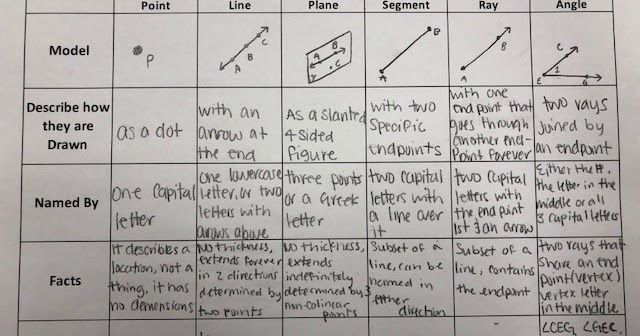 Point Line Plane Segment Ray Angle
Model
P
A B C
A B C
A B
A B
C E 1 G
Describe how
they are
Drawn
as a dot
with an
arrow at
the end
As a slanted
4 sided
figure
with two
specific
endpoints
with one
end point that
goes through
another end-
point forever
two rays
joined by
an endpoint
Named By
one capital
letter
one lowercase
letter, or two
letters with
arrows above
three points
or a Greek
letter
two capital
letters with
a line over
it
two capital
letters with
the end point
1st & an arrow
Either the #,
the letter in the
middle or all
3 capital letters
Facts
It describes a
location, not a
thing. it has
no demensions
No thickness,
extends forever
in 2 directions
determined by
two points
No thickness,
extends
indefinitely
determined by 3
non-colinear
points
Subset of a
line, can be
named in
either
direction
Subset of a
line, contains
the endpoint
two rays that
share an end
point (vertex)
vertex letter
in the middle
∠CEG, ∠GEC